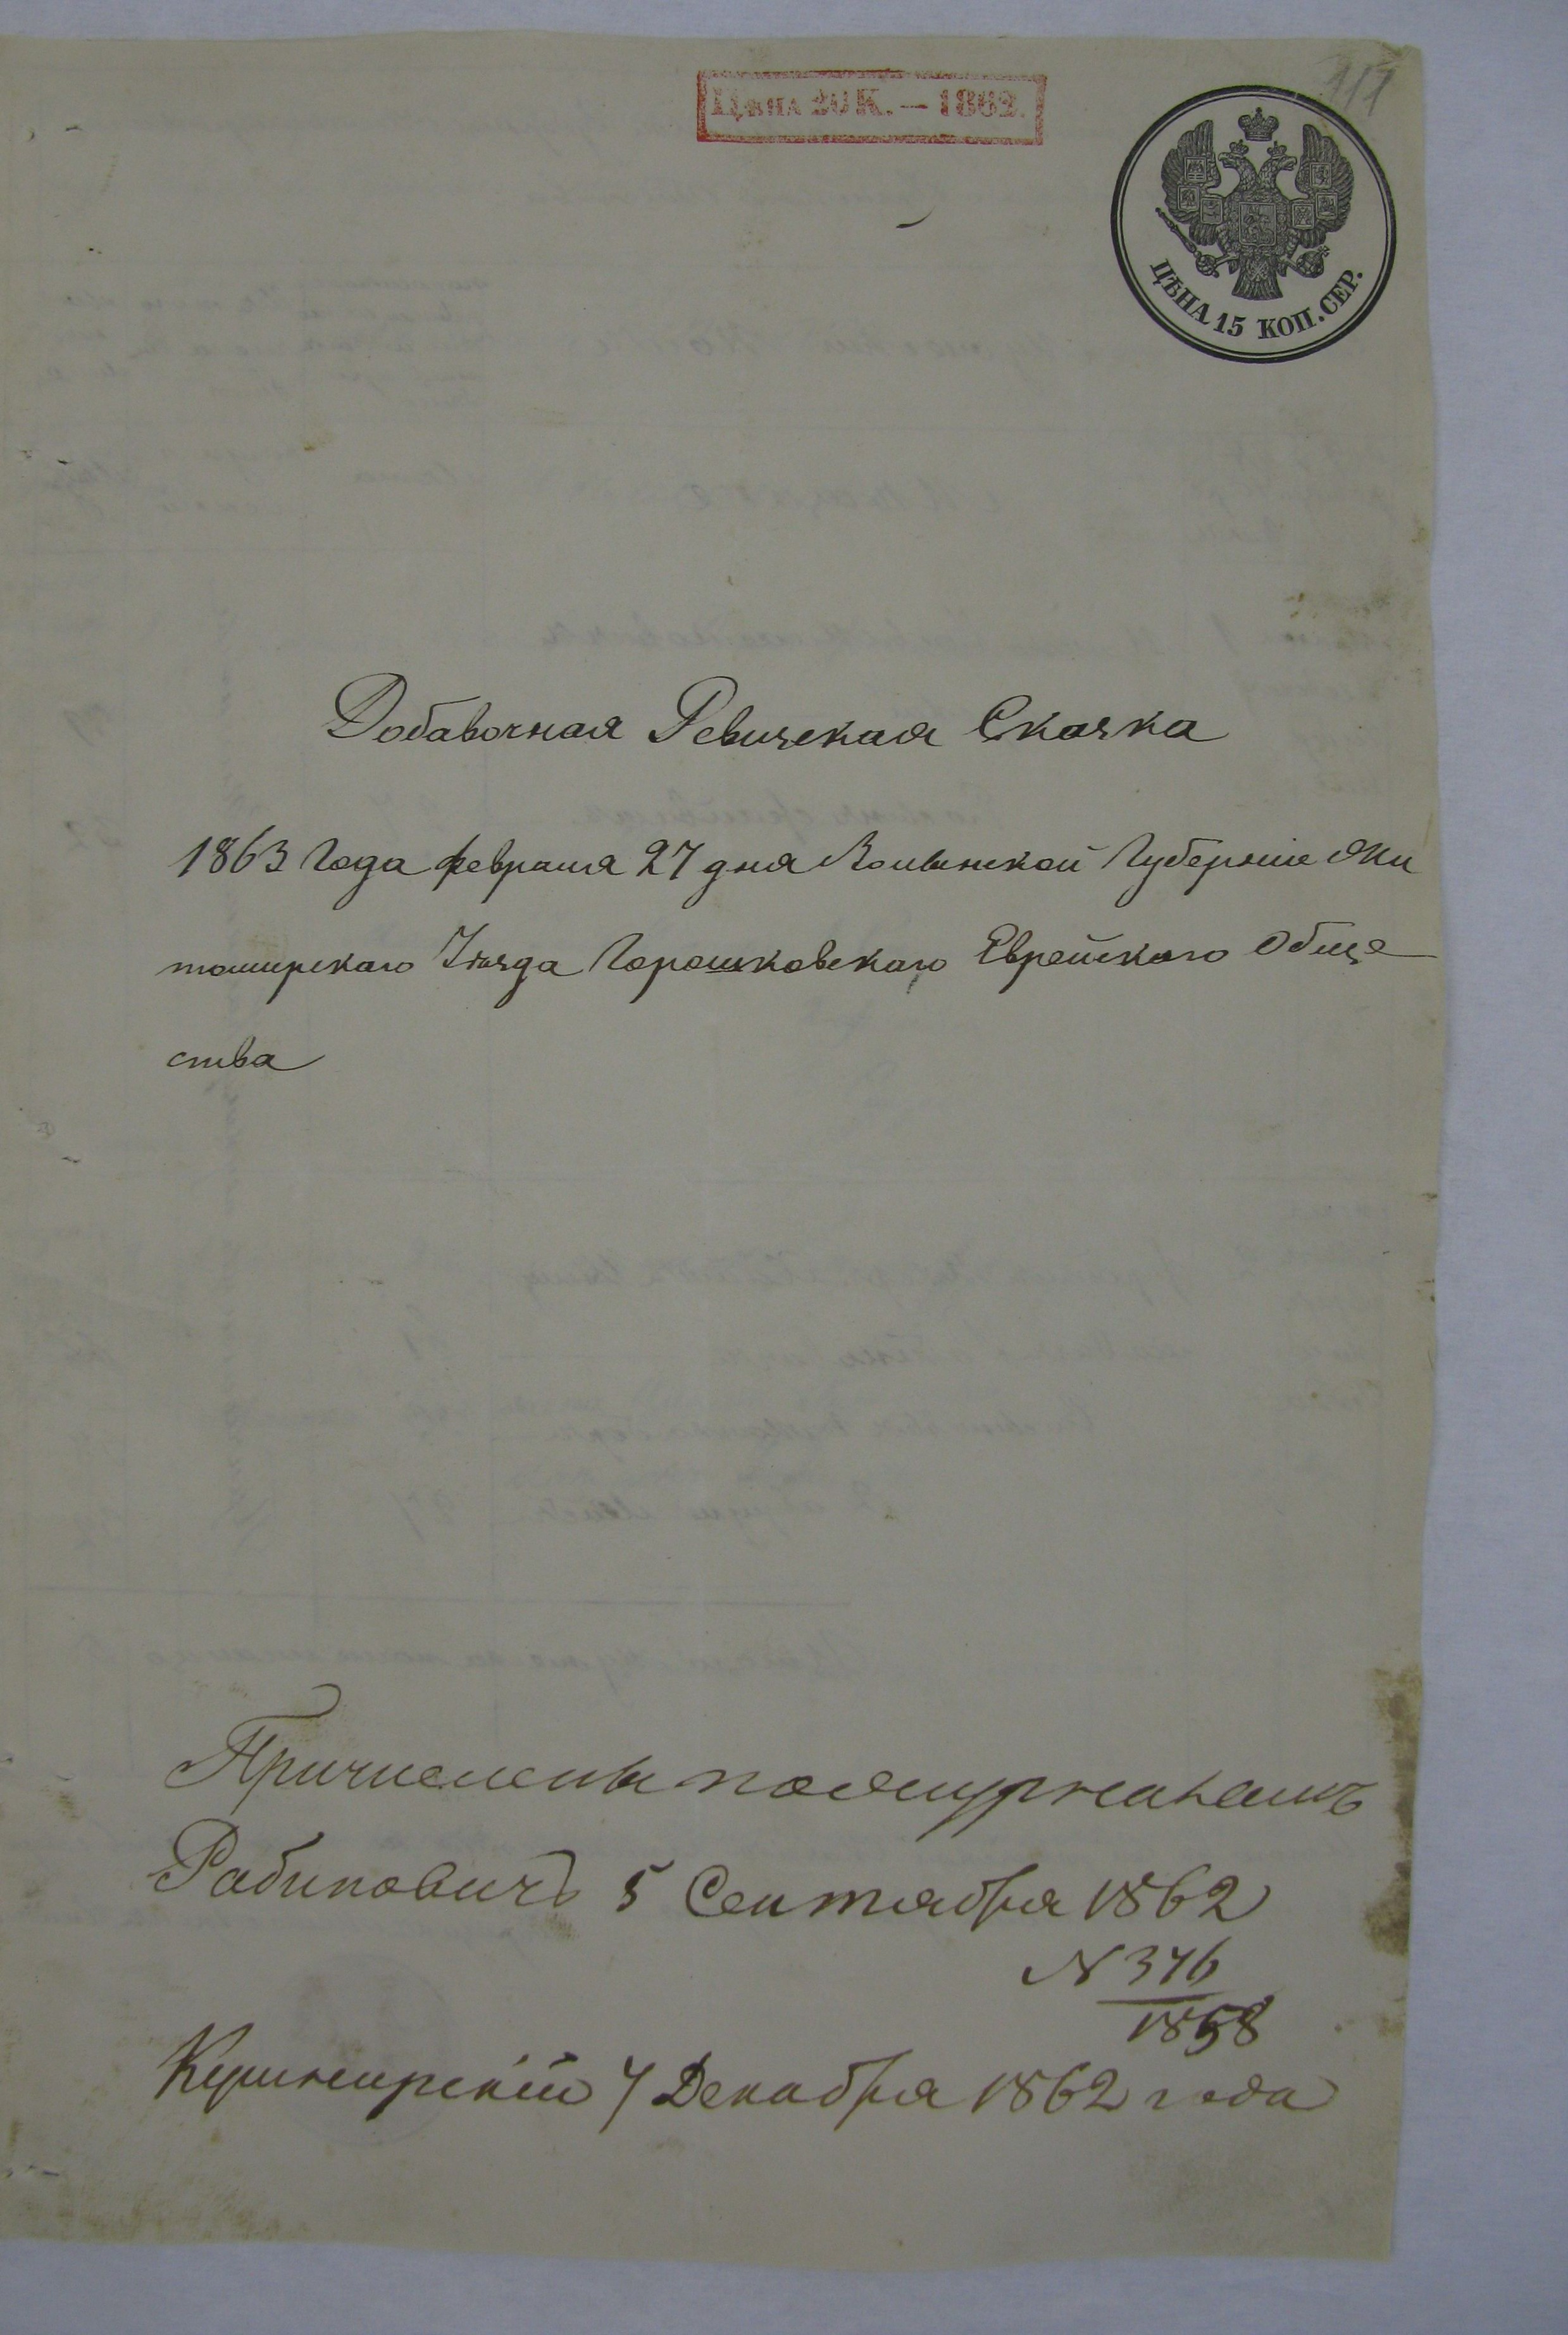 117
Цѣна 20 К. — 1862.
ЦѢНА 15 КОП. СЕР.
Добавочная Ревизская Сказка
1863 Года февраля 27 дня Волынской Губерніи Жи
томирскаго Уѣзда Горошковскаго Еврейского Обще
ства
Причислены по журналамъ
Рабиновичъ 5 Сентября 1862
N 376
1858
Кушнирскій 7 Декабря 1862 года